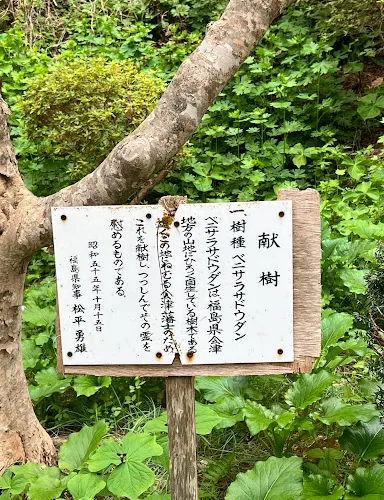 献樹
一、樹種 ベニサラサドウダン
ベニサラサドウダンは、福島県会津
地方の山地にのみ自生している樹木である
この地にねむる会津藩士のため
これを献樹し、つつしんでその霊を
慰めるものである。
昭和五十五年十月十五日
福島県知事 松平勇雄